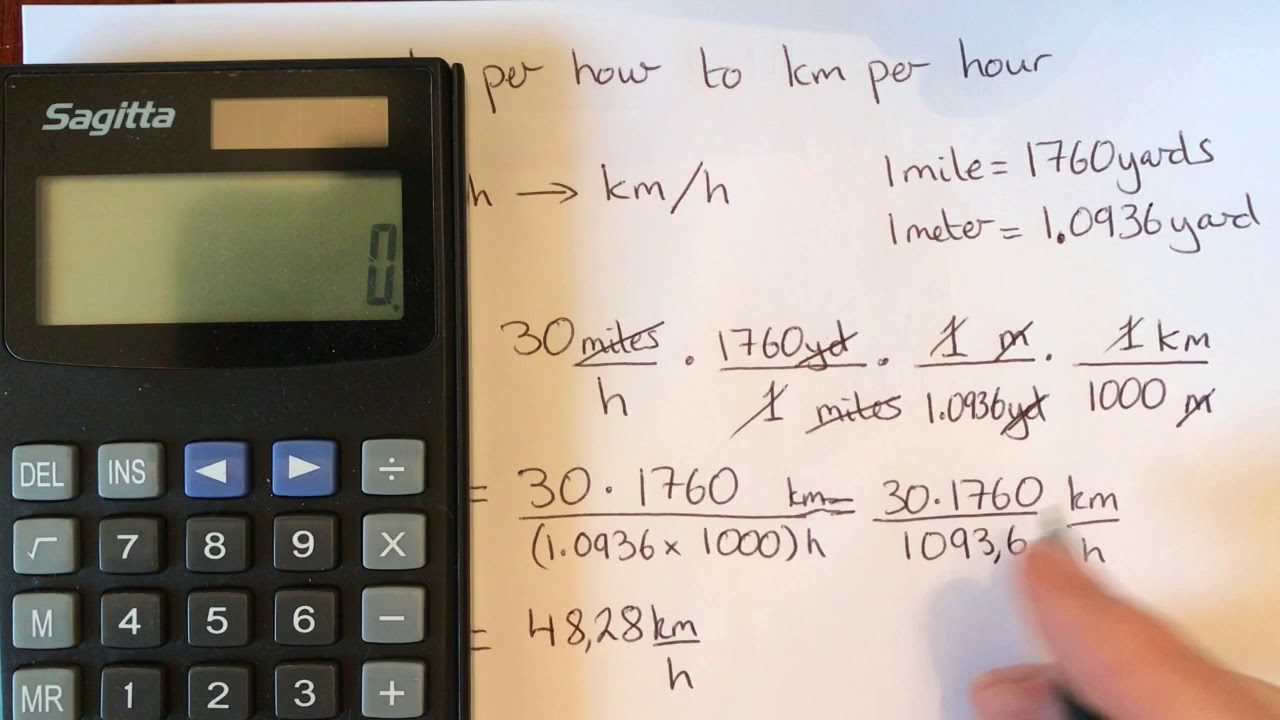 Sagitta
0.
DEL INS ◀ ▶ ÷
√ 7 8 9 X
M 4 5 6 −
MR 1 2 3 +
per hour to km per hour
h → km/h
1 mile = 1760 yards
1 meter = 1.0936 yard
30 miles/h · 1760 yd/1 miles · 1 m/1.0936 yd · 1 km/1000 m
= 30 · 1760 km/(1.0936 × 1000) h = 30 · 1760/1093,6 km/h
= 48,28 km/h